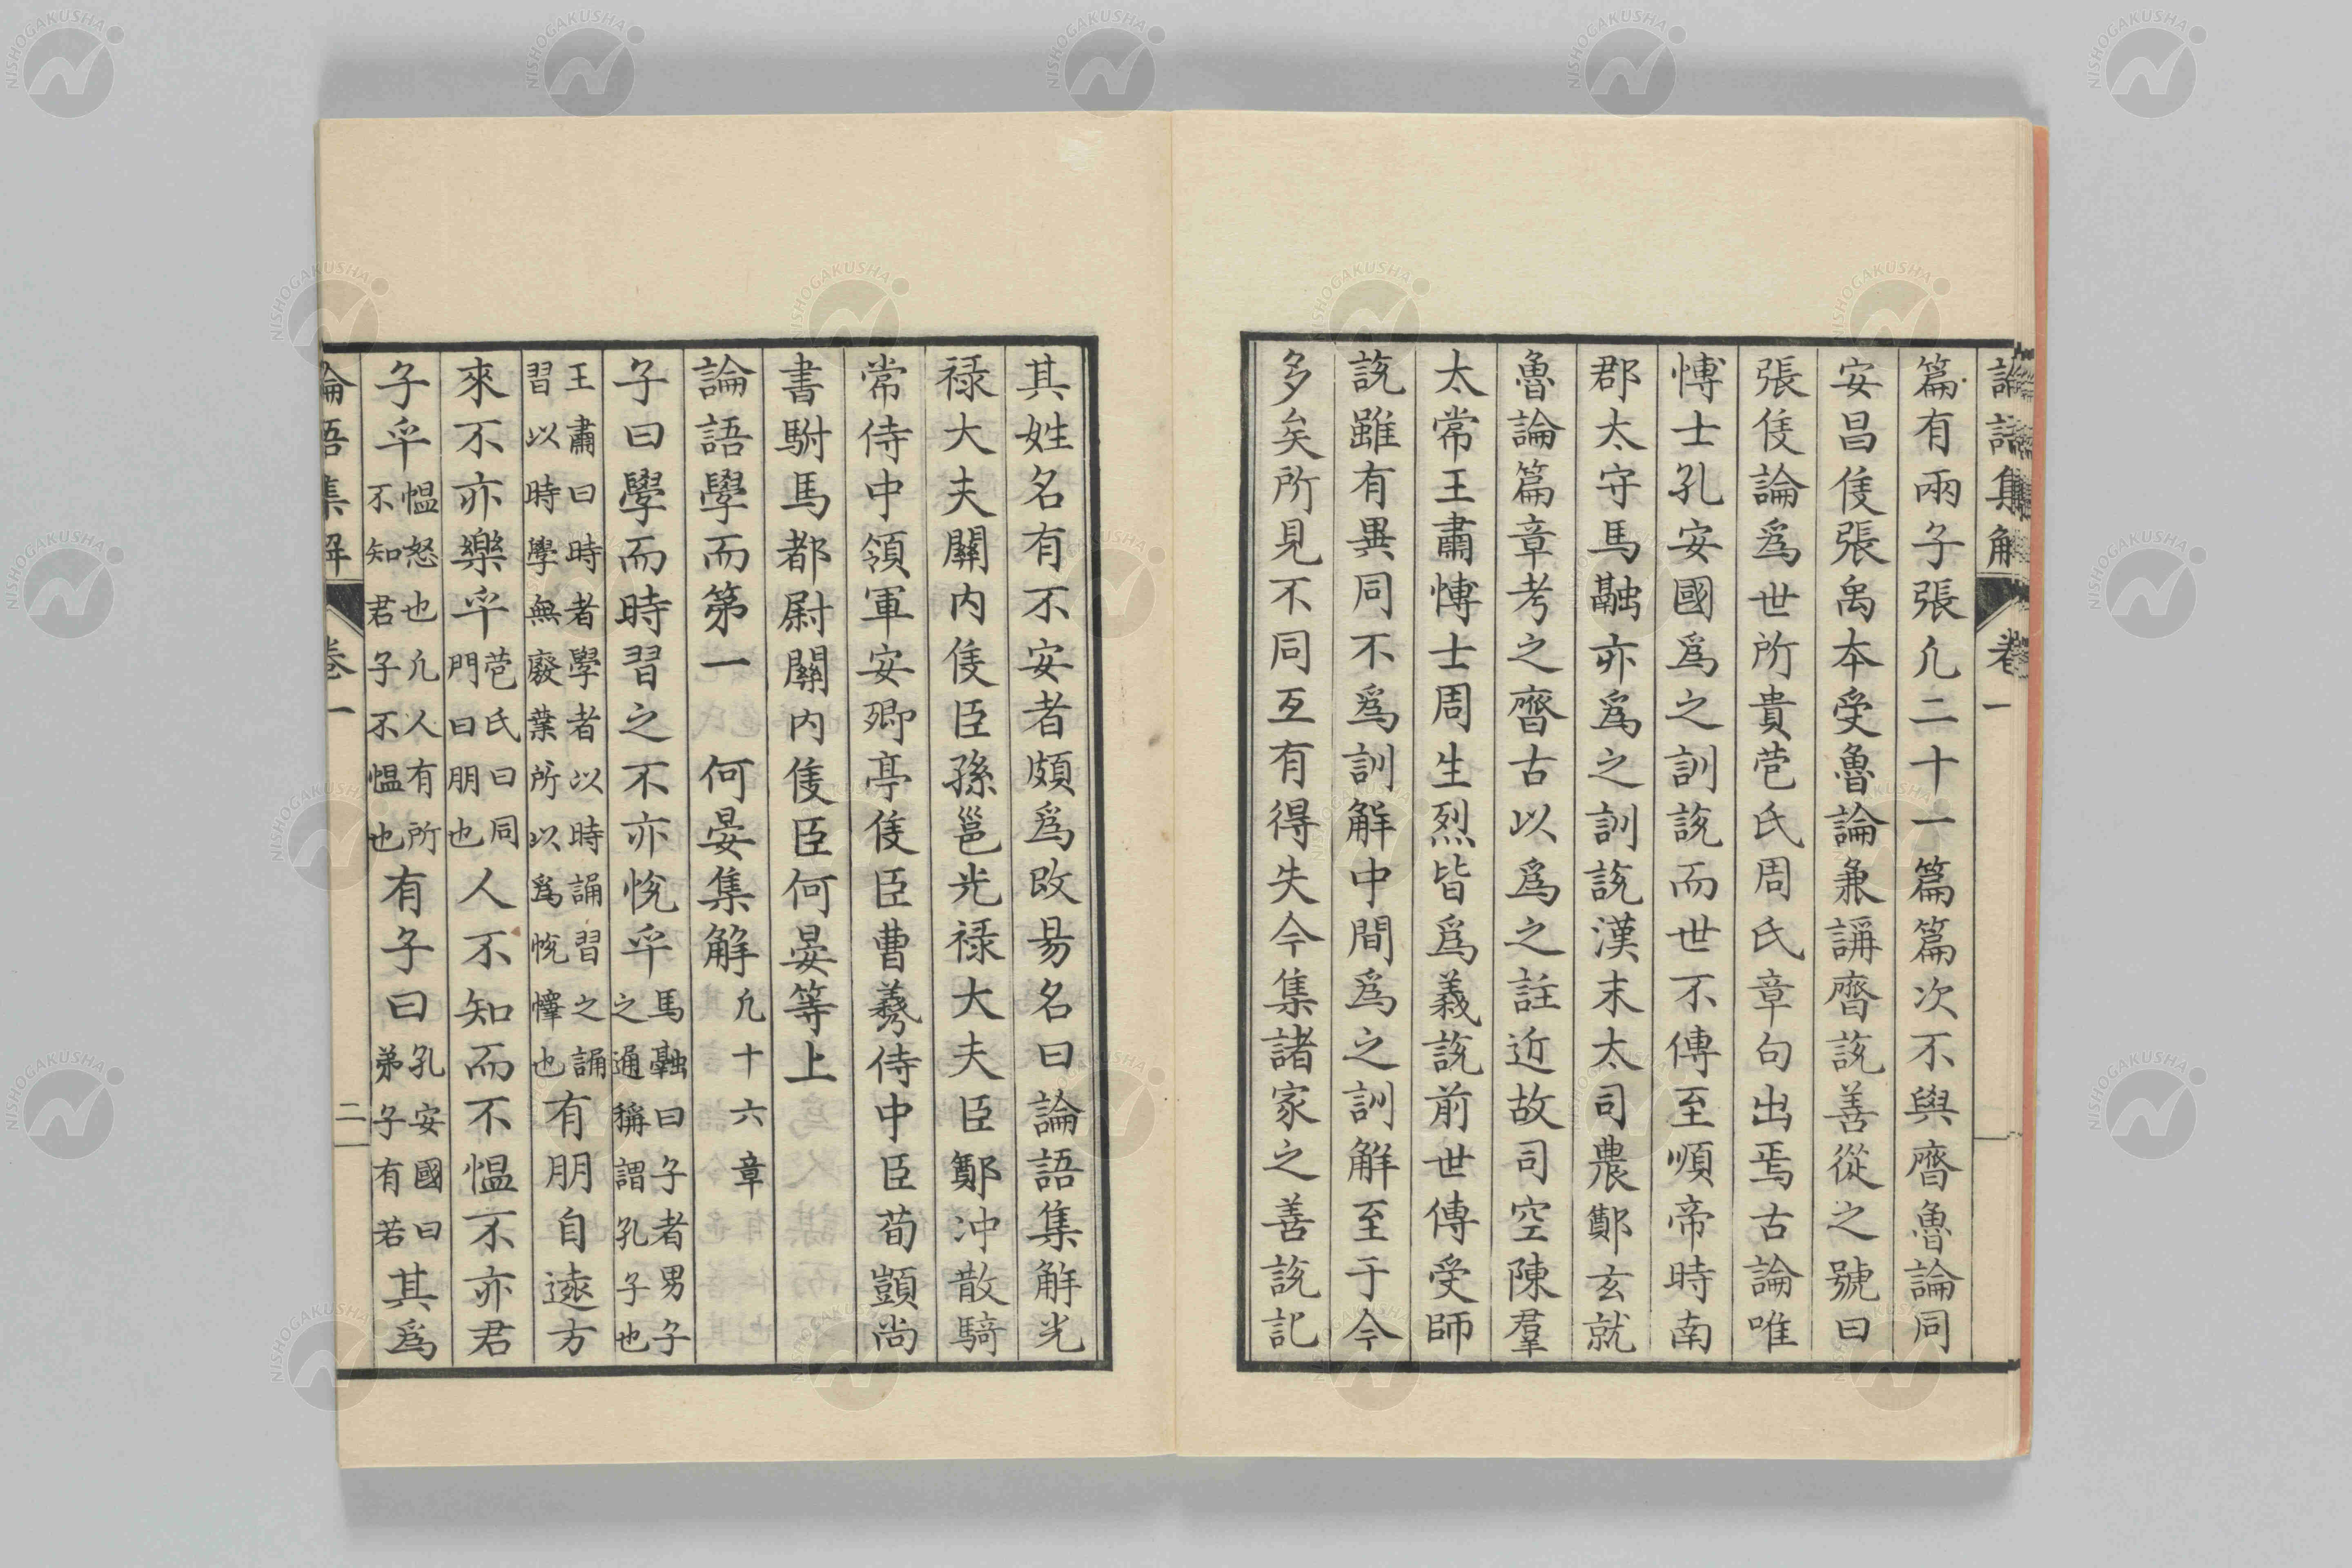 論語集解 卷一
篇有兩子張凢二十一篇篇次不與齊魯論同
安昌侯張禹本受魯論兼講齊說善從之號曰
張侯論爲世所貴苞氏周氏章句出焉古論唯
博士孔安國爲之訓說而世不傳至順帝時南
郡太守馬融亦爲之訓說漢末太司農鄭玄就
魯論篇章考之齊古以爲之註近故司空陳羣
太常王肅博士周生烈皆爲義說前世傳受師
說雖有異同不爲訓解中間爲之訓解至于今
多矣所見不同互有得失今集諸家之善說記
其姓名有不安者頗爲改易名曰論語集解光
禄大夫關内侯臣孫邕光禄大夫臣鄭冲散騎
常侍中領軍安郷亭侯臣曹羲侍中臣荀顗尚
書駙馬都尉關内侯臣何晏等上
論語學而第一 何晏集解 凢十六章
子曰學而時習之不亦悅乎 馬融曰子者男子之通稱謂孔子也
王肅曰時者學者以時誦習之誦習以時學無廢業所以爲悅懌也 有朋自遠方
來不亦樂乎 苞氏曰同門曰朋也 人不知而不愠不亦君
子乎 愠怒也凢人有所不知君子不愠也 有子曰 孔安國曰弟子有若 其爲
論語集解 卷一 二
NISHOGAKUSHA